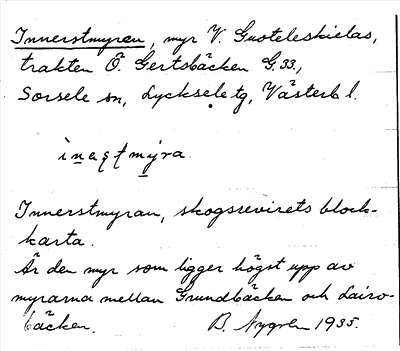 Innerstmyran, myr V. Guoteleskielas,
trakten Ö. Gertsbäcken G. 33,
Sorsele sn, Lycksele tg, Västerb l.
Innerstmyran, skogsrevirets block-
karta.
Är den myr som ligger högst upp av
myrarna mellan Grundbäcken och Lairo-
bäcken. B. Nygren 1935.